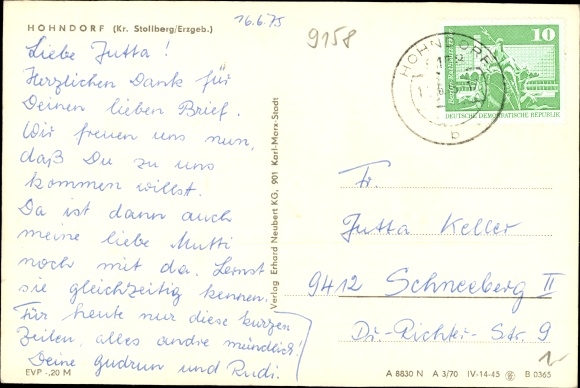 HOHNDORF (Kr. Stollberg/Erzgeb.)
16.6.75
9158
Liebe Jutta!
Herzlichen Dank für
Deinen lieben Brief.
Wir freuen uns nun,
daß Du zu uns
kommen willst.
Da ist dann auch
meine liebe Mutti
noch mit da. Lernst
sie gleichzeitig kennen.
Für heute nur diese kurzen
Zeilen, alles andre mündlich!
Deine Gudrun und Rudi.
EVP -,20 M
Verlag Erhard Neubert KG, 901 Karl-Marx-Stadt
10
DEUTSCHE DEMOKRATISCHE REPUBLIK
HOHNDORF
b
Fr.
Jutta Keller
9412 Schneeberg II
Dr.-Richter-Str. 9
A 8830 N A 3/70 IV-14-45 B 0365